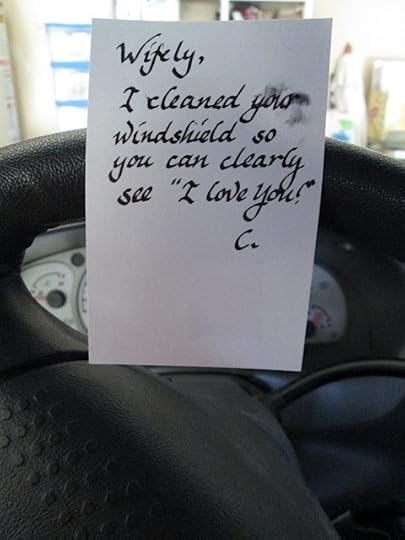 Wifely,
I cleaned your
windshield so
you can clearly
see "I love you!"
C.